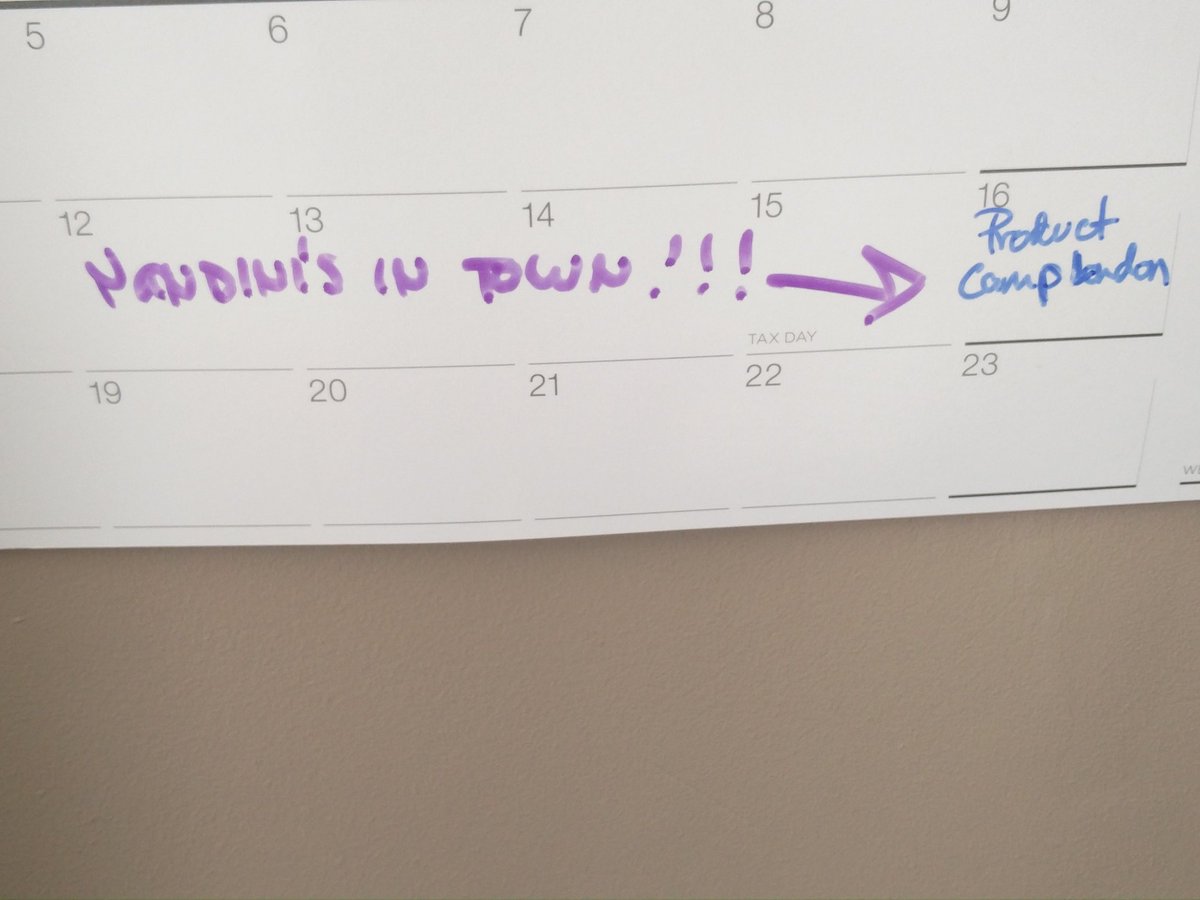 5 6 7 8 9
12 13 14 15 16
NANDINI'S IN TOWN!!!
Product
Camp London
TAX DAY
19 20 21 22 23